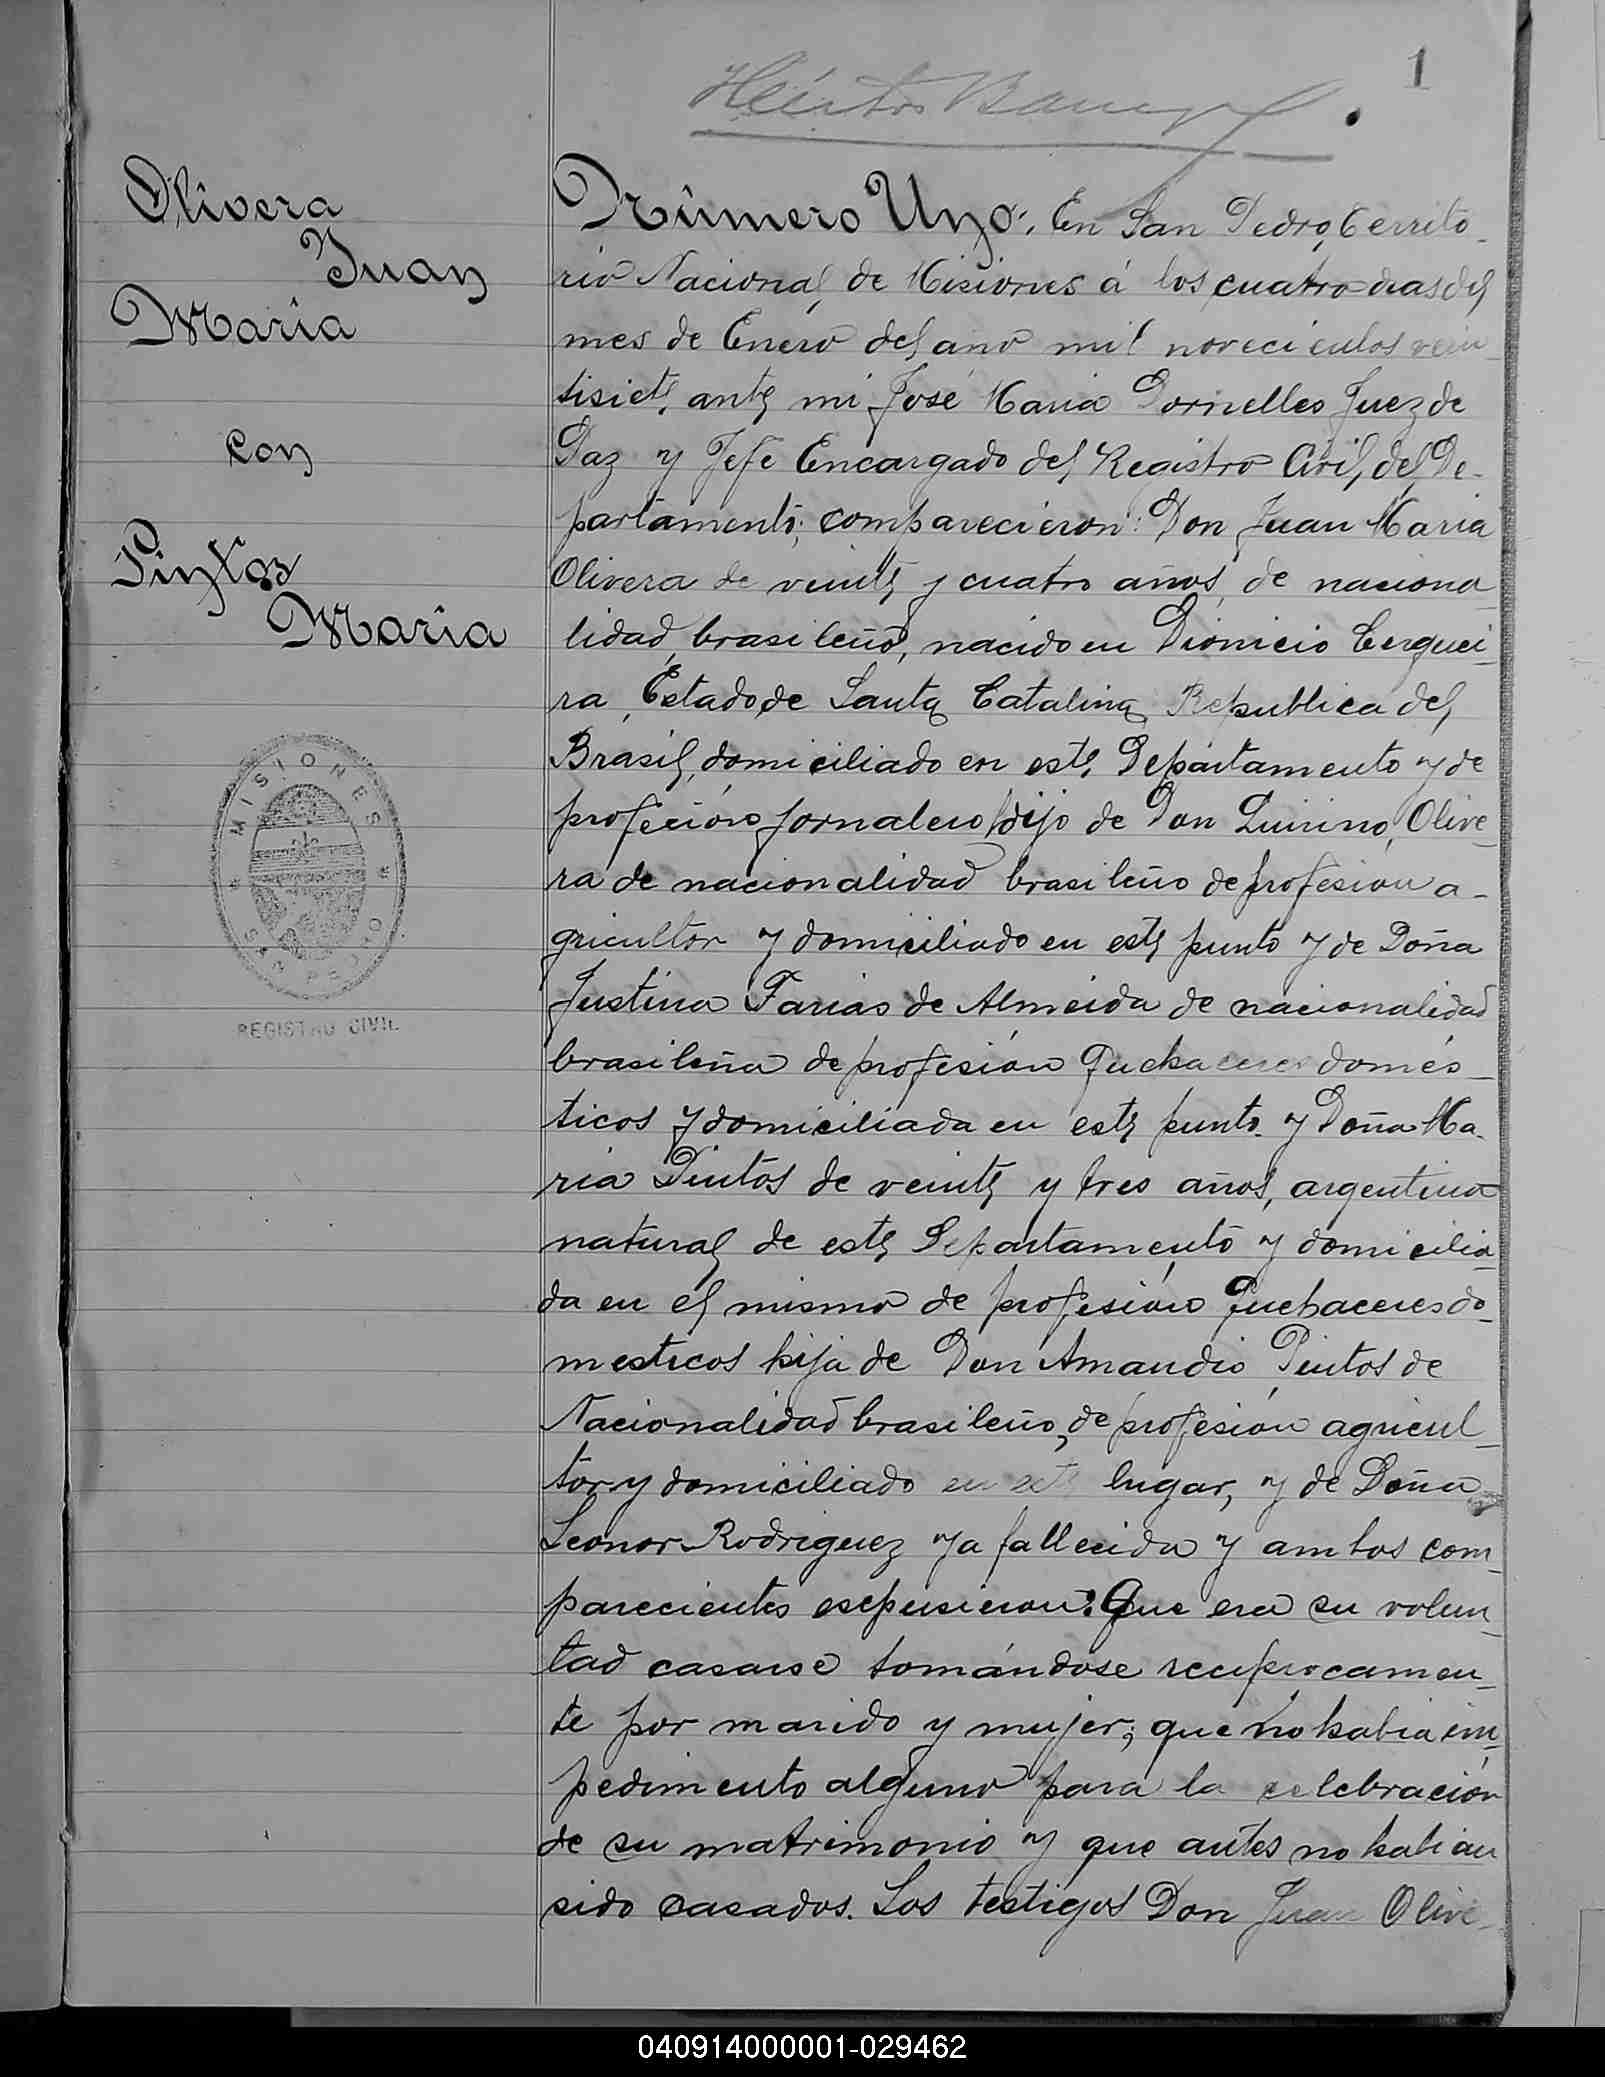 1
Olivera
Juan
María
con
Pintos
María
MISIONES
SAN PEDRO
REGISTRO CIVIL
Número Uno: En San Pedro, Territo-
rio Nacional de Misiones á los cuatro dias del
mes de Enero del año mil novecientos vein-
tisiete, ante mi José Maria Dornelles Juez de
Paz y Jefe Encargado del Registro Civil, del De-
partamento; comparecieron: Don Juan Maria
Olivera de veinte y cuatro años, de naciona-
lidad brasileño, nacido en Dionicio Cerquei-
ra, Estado de Santa Catalina Republica del
Brasil, domiciliado en este Departamento y de
profeción jornalero, hijo de Don Quirino Olive-
ra de nacionalidad brasileño de profesion a-
gricultor y domiciliado en este punto y de Doña
Justina Farias de Almeida de nacionalidad
brasileña de profesión Quehaceres domés-
ticos y domiciliada en este punto. y Doña Ma-
ria Pintos de veinte y tres años, argentina
natural de este Departamento y domicilia-
da en el mismo de profesión Quehaceres do-
mesticos hija de Don Amandio Pintos de
Nacionalidad brasileño, de profesión agricul-
tor y domiciliado en este lugar, y de Doña
Leonor Rodriguez ya fallecida y ambos com-
parecientes esepusieron: Que era su volun-
tad casarse tomándose reciprocamen-
te por marido y mujer; que no habia im-
pedimento alguno para la celebración
de su matrimonio y que antes no habian
sido casados. Los testigos Don Juan Olive-
040914000001-029462